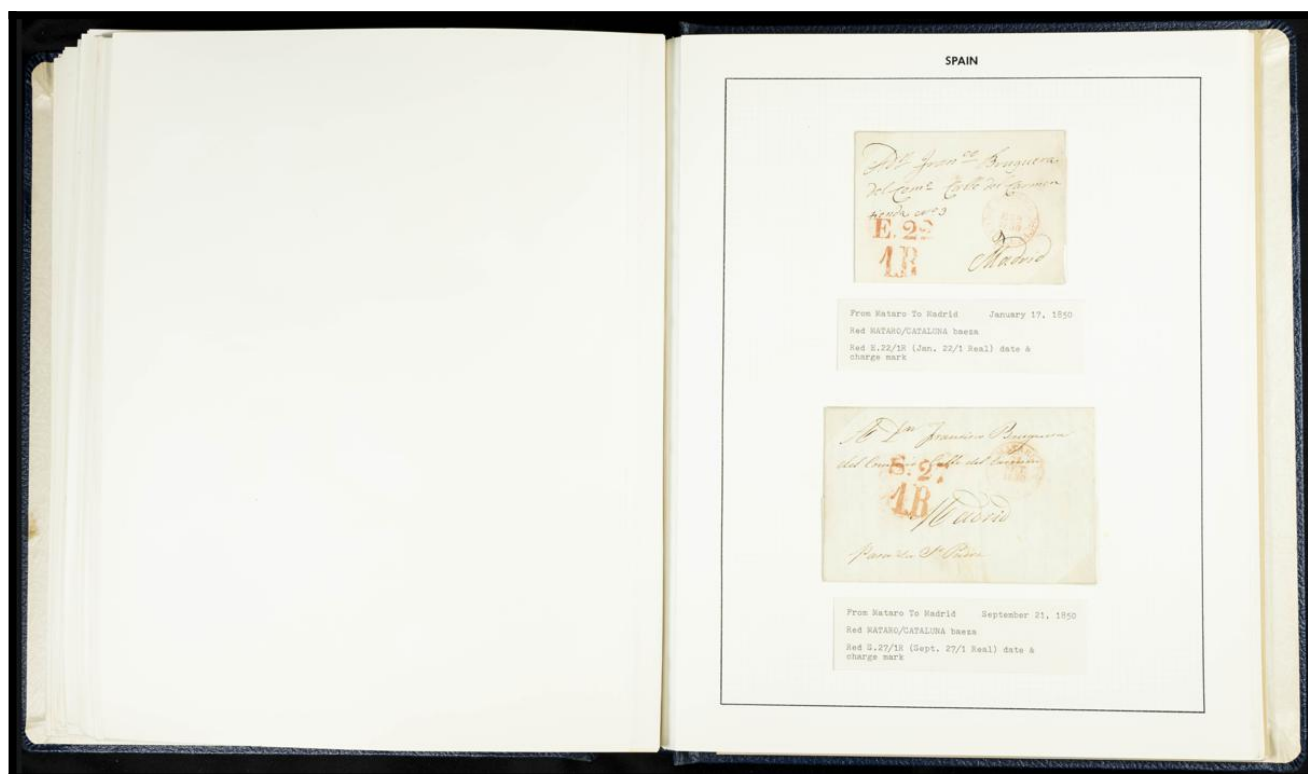 SPAIN
A Dn Franco Bruguera
del Come Calle del Carmen
tienda no 3
E. 22
1R
Madrid
From Mataro To Madrid January 17, 1850
Red MATARO/CATALUNA baeza
Red E.22/1R (Jan. 22/1 Real) date &
charge mark
A Dn Francisco Bruguera
del Comercio Calle del Carmen
S. 27
1R
Madrid
From Mataro To Madrid September 21, 1850
Red MATARO/CATALUNA baeza
Red S.27/1R (Sept. 27/1 Real) date &
charge mark